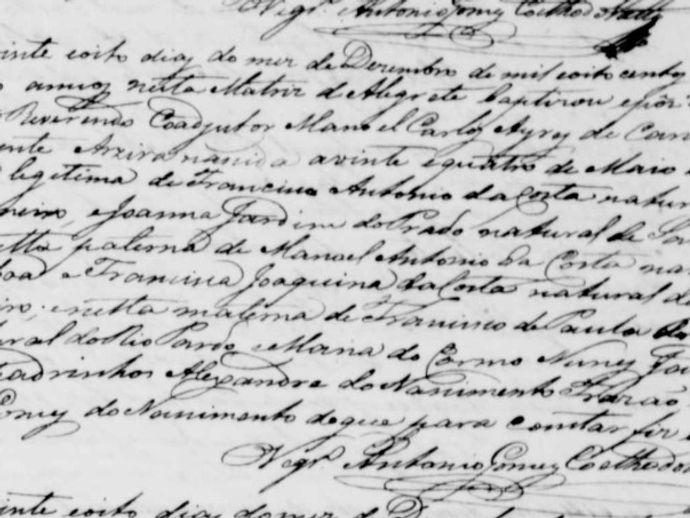 Vigr.º Antonio Gomes Coelho do Valle
inte e oito dias do mez de Dezembro de mil oito centos
annos nesta Matriz de Alegrete baptizou e pôz
Reverendo Coadjutor Manoel Carlos Ayres de Car
ente Alzira nascida a vinte e quatro de Maio
legitima de Francisco Antonio da Costa natur
neiro, e Joanna Jardim do Prado natural de
etta paterna de Manoel Antonio da Costa na
boa e Francisca Joaquina da Costa natural d
iro; e netta materna de Francisco de Paula
ural do Rio Pardo, e Maria do Carmo Nunes
Padrinhos Alexandre do Nascimento Frazão
Gomes do Nascimento do que para constar fiz
Vigr.º Antonio Gomes Coelho do
inte e oito dias do mez de D